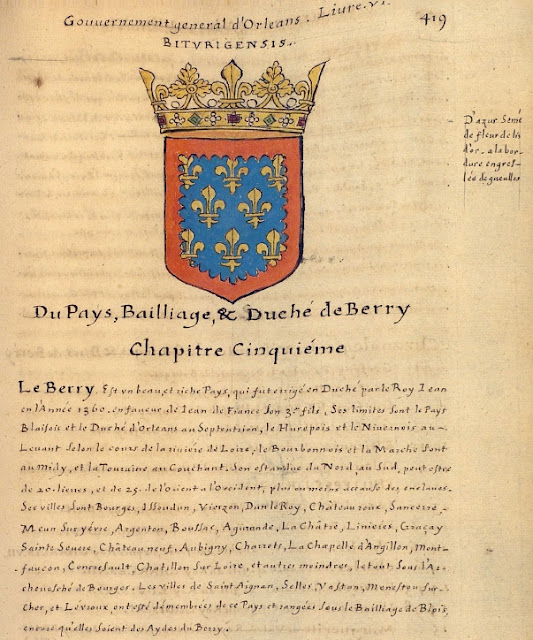 Gouvernement general d'Orleans. Livre. VI
419
BITURIGENSIS.
D'azur Semé
de fleur de lis
d'or. a la bor-
dure engres-
lée de gueulles
Du Pays, Bailliage, & Duché de Berry
Chapitre Cinquiéme
Le Berry. Est un beau et riche Pays, qui fut erigé en Duché par le Roy Iean
en l'Année 1360. en faueur de Iean de France Son 3e fils, Ses limites sont le Pays
Blaisois et le Duché d'Orleans au Septentrion, le Hurepois et le Nivernois au
Leuant Selon le cours de la riviere de Loire, le Bourbonnois et la Marche Sont
au Midy, et la Touraine au Couchant. Son estandue du Nord au Sud, peut estre
de 20. lieues, et de 25. de l'orient a l'Occident, plus ou moins a cause des enclaues.
Ses villes Sont Bourges, Issoudun, Vierzon, Dun le Roy, Château roux, Sancerre
Meun Sur yévre, Argenton, Boussac, Agurande, La Châtre, Linieres, Graçay
Sainte Seuere, Château neuf, Aubigny, Charrots, La Chapelle d'Angillon, Mont-
faucon, Concresault, Chatillon Sur Loire, et autres moindres, le tout Sous l'Ar-
cheuesché de Bourges. Les villes de Saint Aignan, Selles, Vastan, Menestou Sur-
Cher, et Levroux ont esté démembrées de ce Pays et rangées Sous le Bailliage de Blois,
encore qu'elles soient des Aydes du Berry.